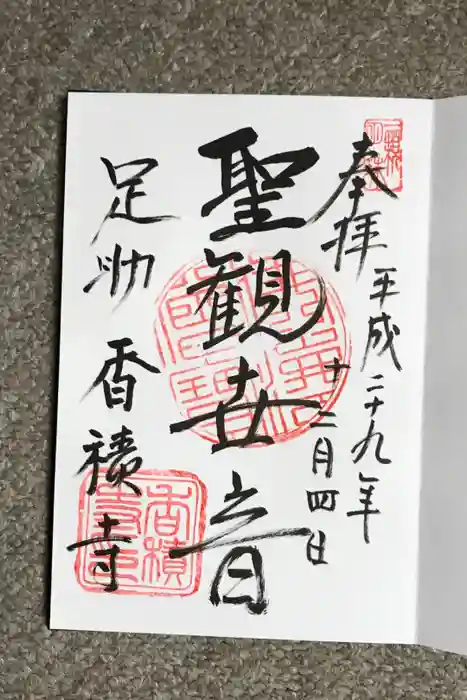 奉拝
平成二十九年
十二月四日
聖観世音
足助 香積寺
香積寺印